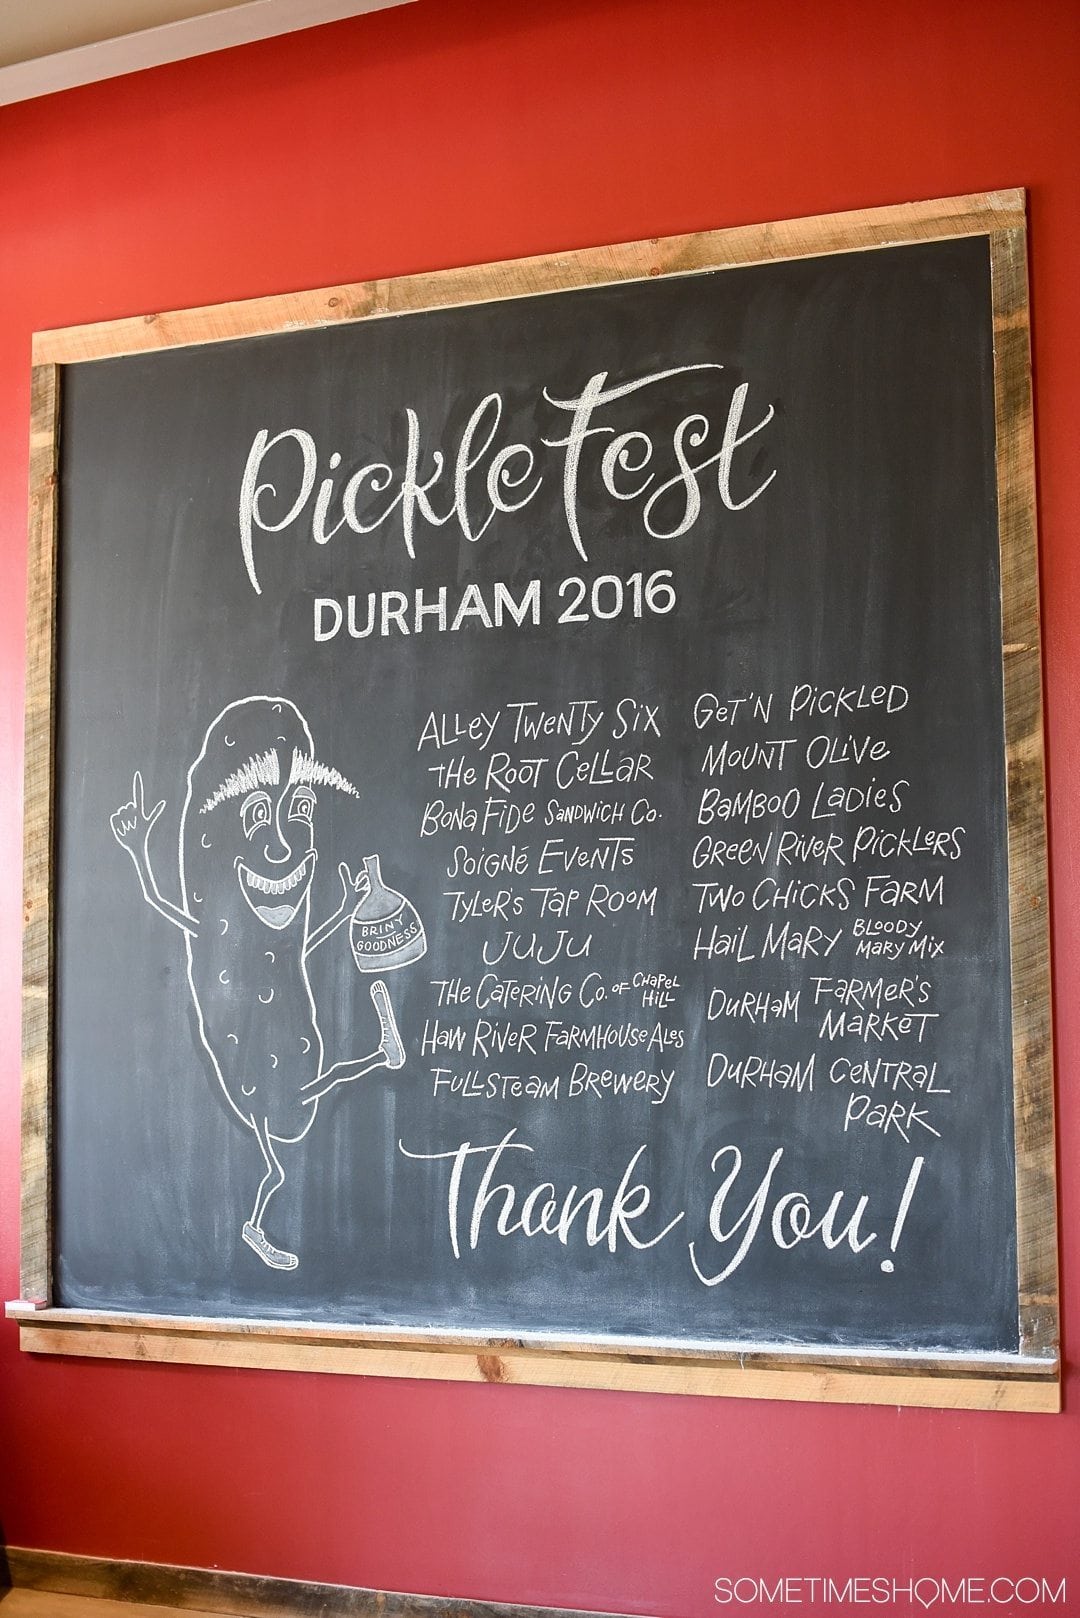 PickleFest
DURHAM 2016
ALLEY TWENTY SIX
THE ROOT CELLAR
BONA FIDE SANDWICH CO.
SOIGNÉ EVENTS
TYLER'S TAP ROOM
JUJU
THE CATERING CO. OF CHAPEL HILL
HAW RIVER FARMHOUSE ALES
FULLSTEAM BREWERY
GET'N PICKLED
MOUNT OLIVE
BAMBOO LADIES
GREEN RIVER PICKLERS
TWO CHICKS FARM
HAIL MARY BLOODY MARY MIX
DURHAM FARMER'S
MARKET
DURHAM CENTRAL
PARK
BRINY
GOODNESS
Thank You!
SOMETIMESHOME.COM